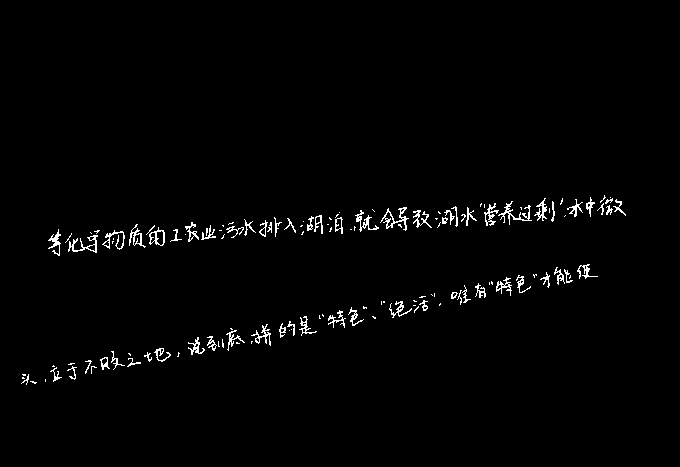 等化学物质的工农业污水排入湖泊,就会导致湖水“营养过剩”,水中微
头,立于不败之地,说到底,拼的是“特色”、“绝活”,唯有“特色”才能使